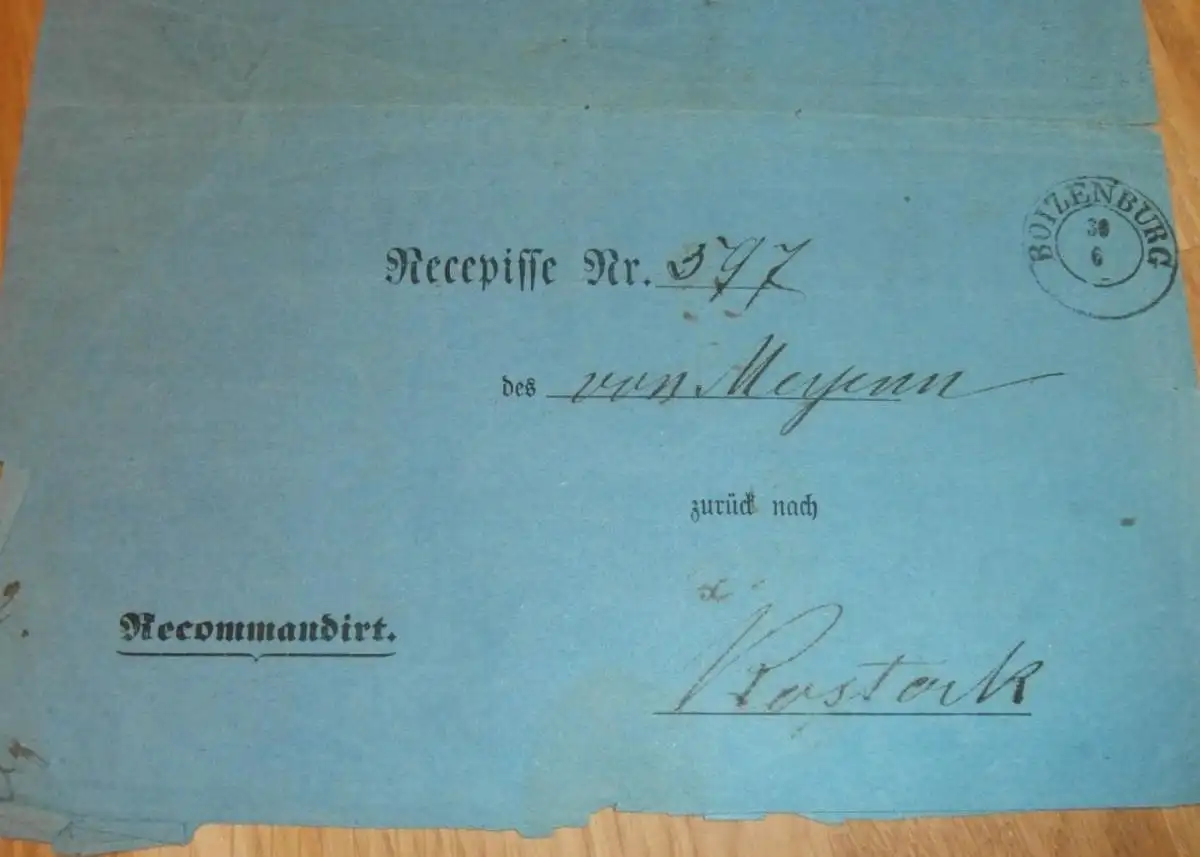 BOIZENBURG
30
6
Recepisse Nr. 597
des von Meyenn
zurück nach
Rostock
Recommandirt.